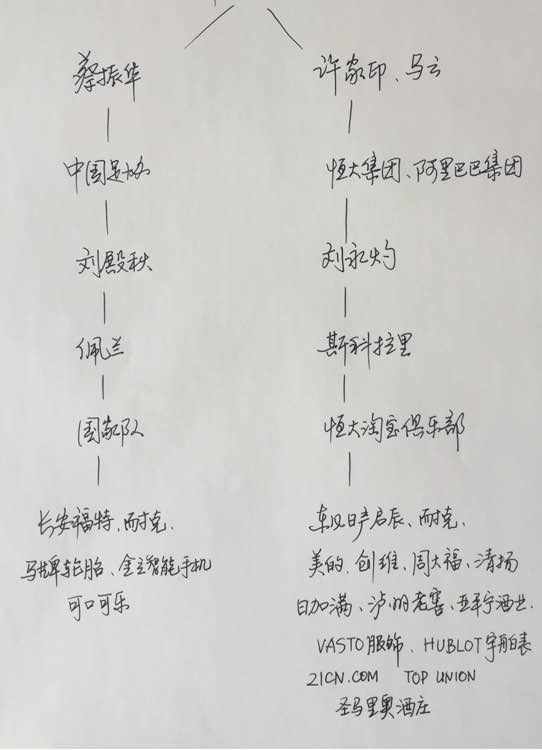 蔡振华
中国足协
刘殿秋
佩兰
国家队
长安福特、耐克、
马牌轮胎、金立智能手机
可口可乐
许家印、马云
恒大集团、阿里巴巴集团
刘永灼
斯科拉里
恒大淘宝俱乐部
东风日产启辰、耐克、
美的、创维、周大福、清扬
日加满、泸州老窖、亚平宁酒业、
VASTO服饰、HUBLOT宇舶表
21CN.COM TOP UNION
圣马里奥酒庄